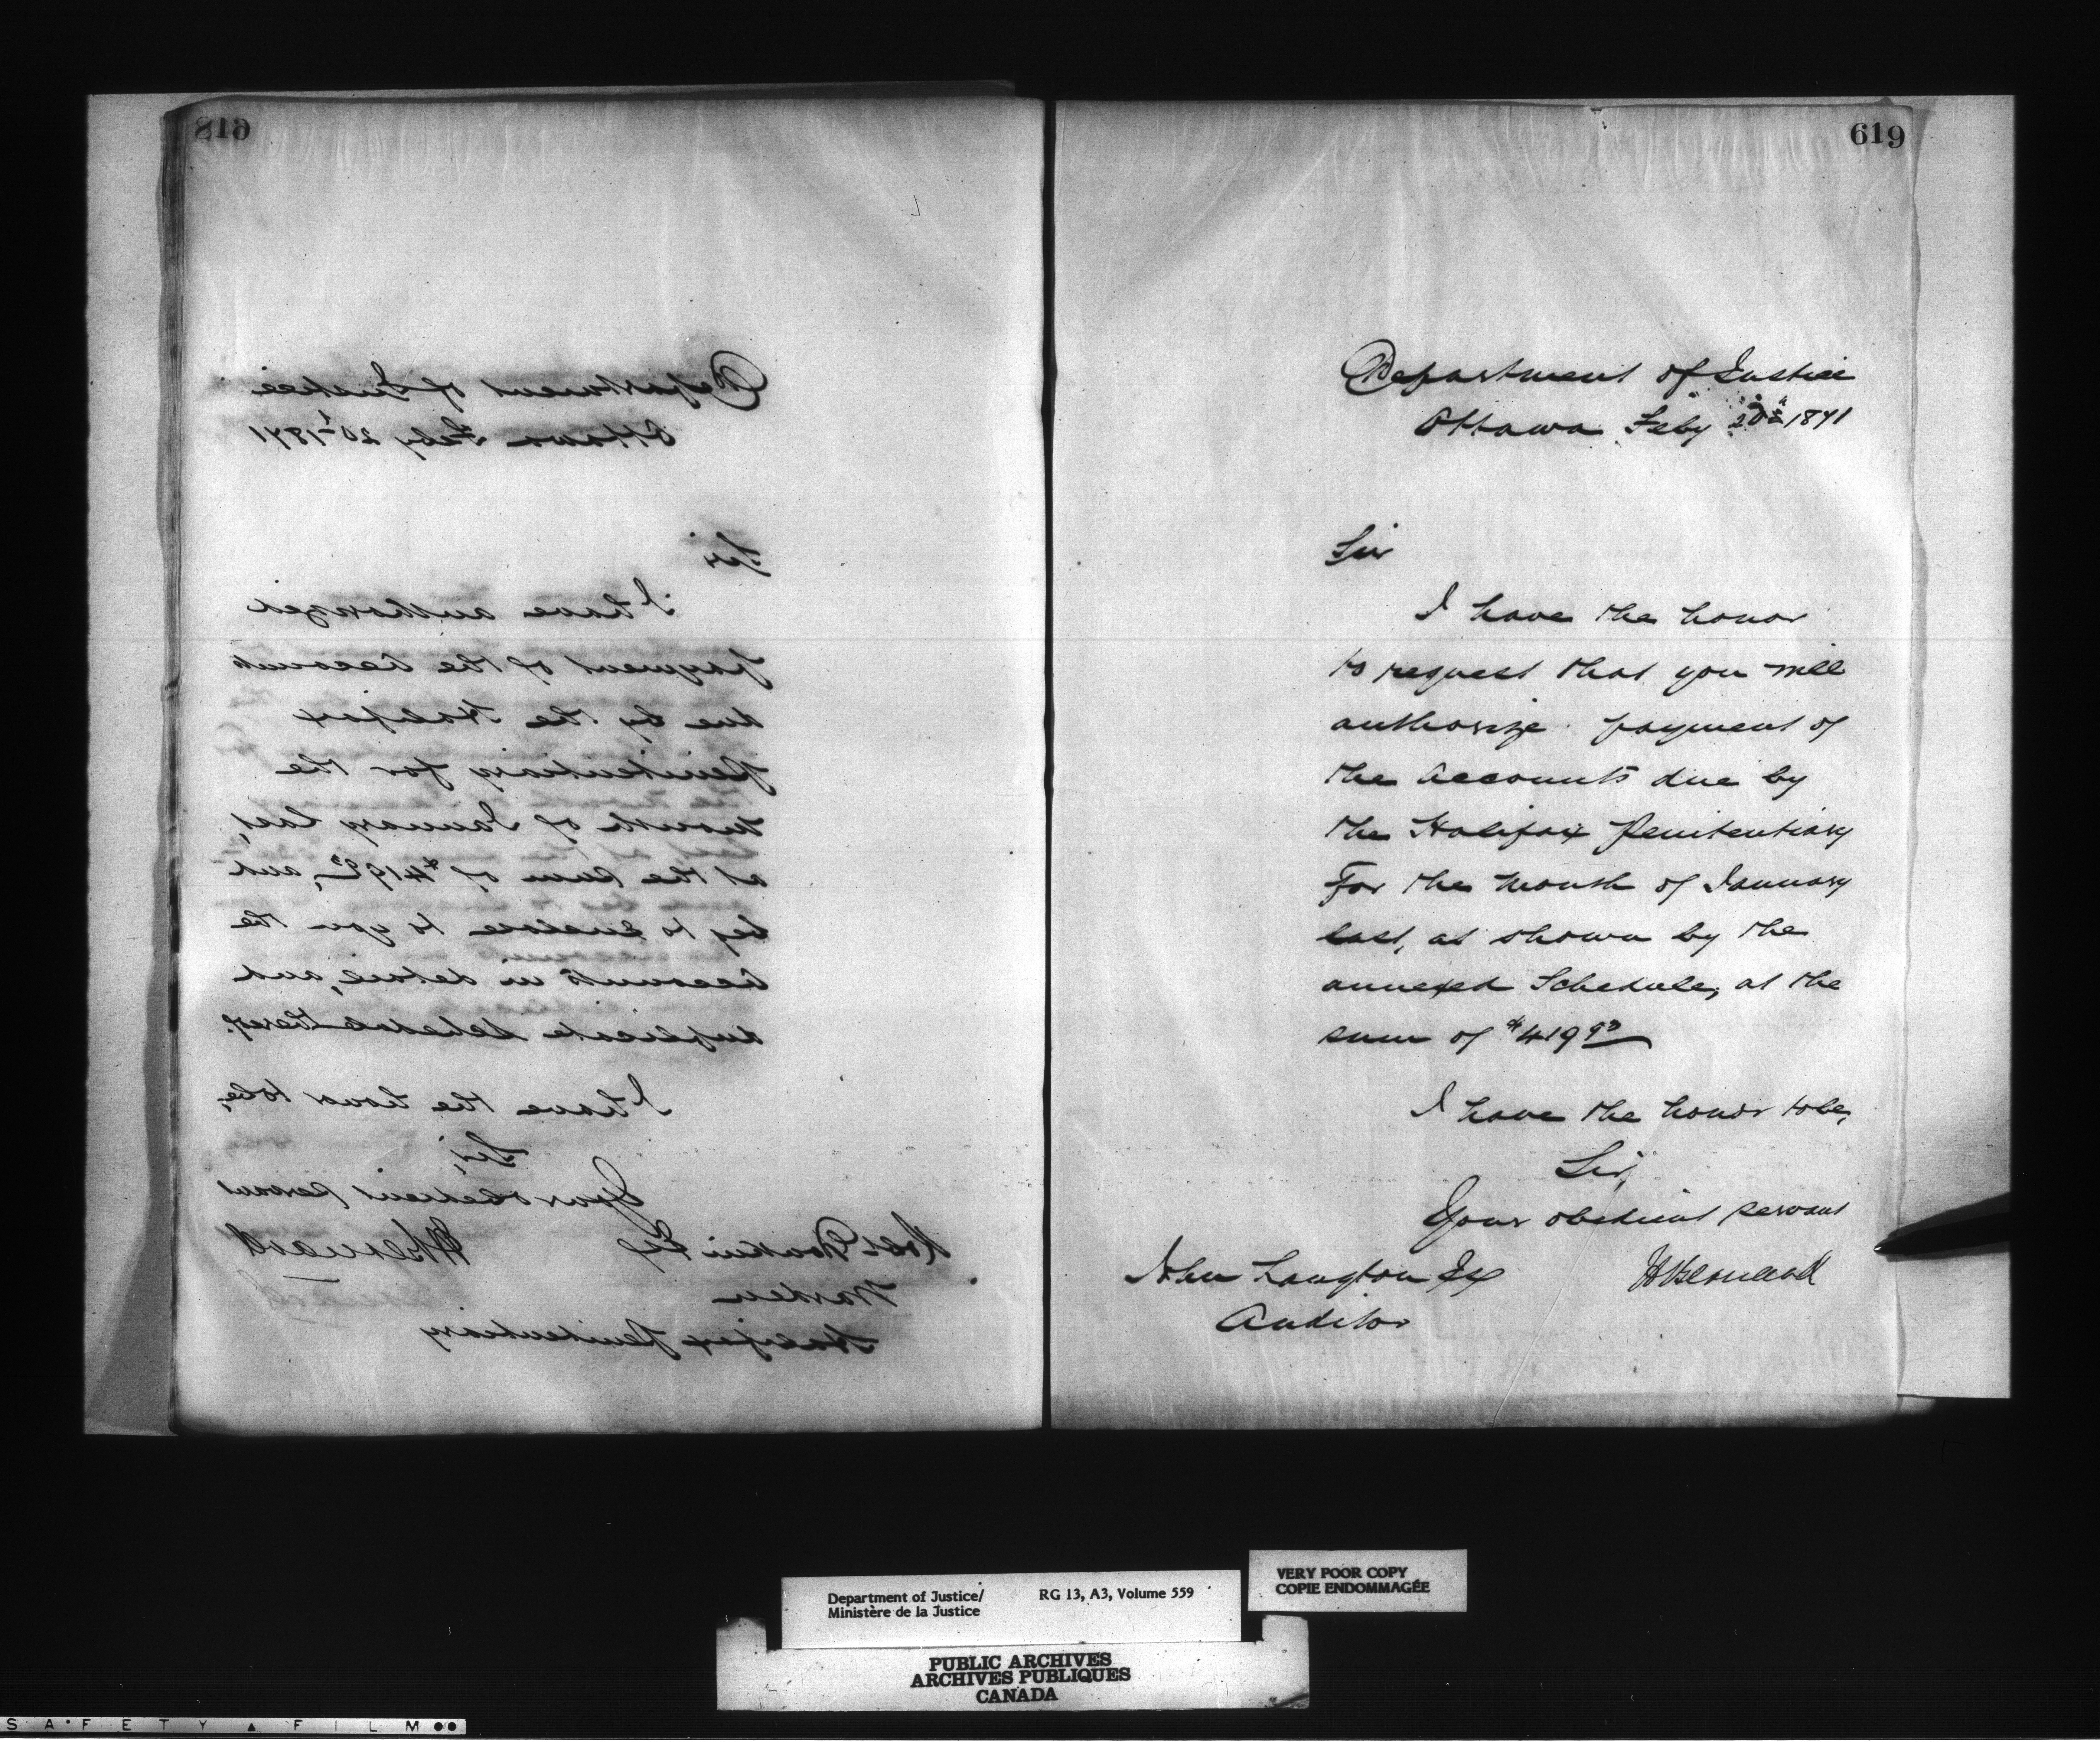 618
Department of Justice
Ottawa Feby 20th 1871
Sir
I have authorized
payment of the accounts
due by the Halifax
Penitentiary for the
month of January last,
at the sum of $419 93, and
beg to enclose to you the
accounts in detail, and
duplicate schedule thereof.
I have the honor to be,
Sir,
Your obedient servant
H Bernard
Robt Donkin Esq
Warden
Halifax Penitentiary
619
Department of Justice
Ottawa Feby 20th 1871
Sir
I have the honor
to request that you will
authorize payment of
the accounts due by
the Halifax Penitentiary
for the month of January
last, as shown by the
annexed Schedule, at the
sum of $419 93
I have the honor to be,
Sir,
Your obedient servant
H Bernard
John Langton Esq
Auditor
Department of Justice/
Ministère de la Justice
RG 13, A3, Volume 559
VERY POOR COPY
COPIE ENDOMMAGÉE
PUBLIC ARCHIVES
ARCHIVES PUBLIQUES
CANADA
SAFETY FILM